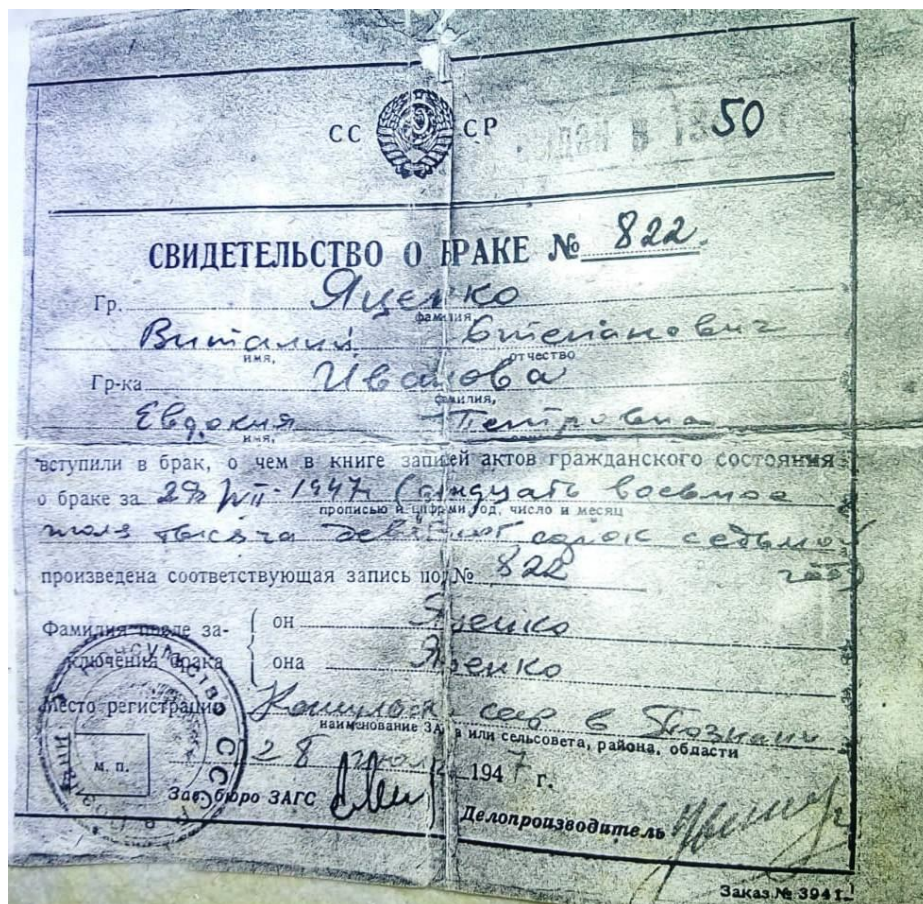 СС СР
50
СВИДЕТЕЛЬСТВО О БРАКЕ № 822.
Гр. Яценко
фамилия,
Виталий Степанович
имя, отчество
Гр-ка Иванова
фамилия,
Евдокия Петровна
имя,
вступили в брак, о чем в книге записей актов гражданского состояния
о браке за 28 VII-1947г (двадцать восьмое
прописью и цифрами год, число и месяц
июля тысяча девятьсот сорок седьмой
произведена соответствующая запись под № 822 года)
Фамилия после за- он Яценко
ключения брака она Яценко
Место регистрации Консульство СССР в Познани
наименование ЗАГСа или сельсовета, района, области
28 июля 1947 г.
м. п.
Зав. бюро ЗАГС
Делопроизводитель
КОНСУЛЬСТВО СССР
Заказ № 3941.